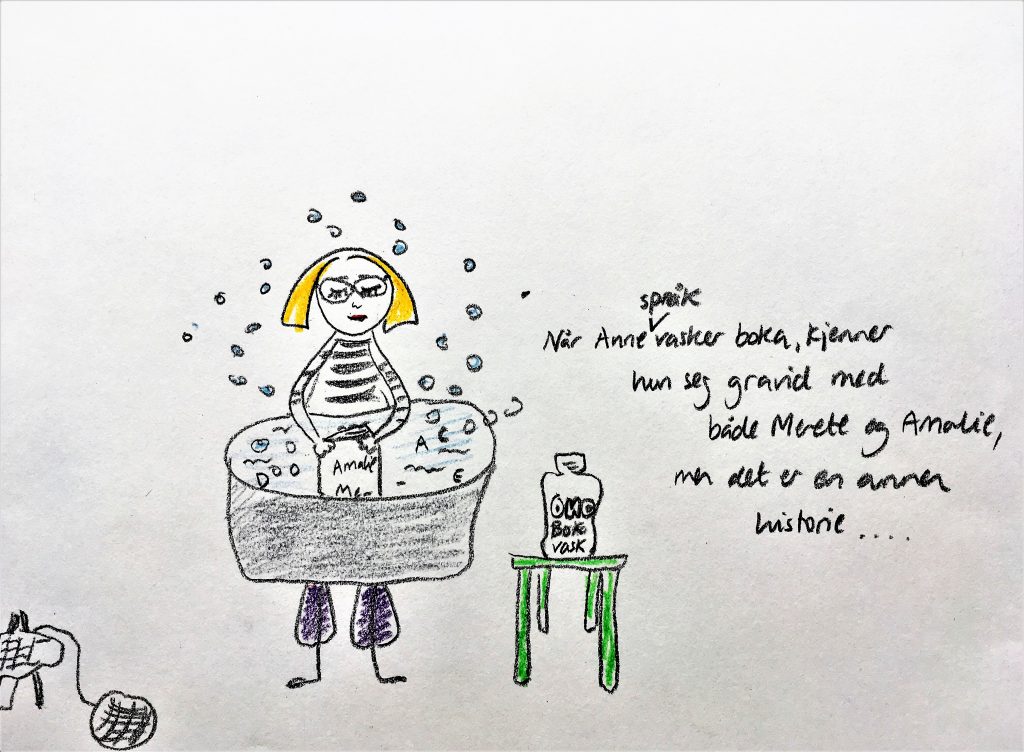 språk
Når Anne vasker boka, kjenner
hun seg gravid med
både Merete og Amalie,
men det er en annen
historie ....
A
E
D
E
Amalie
Me-
OMO
Bok
vask